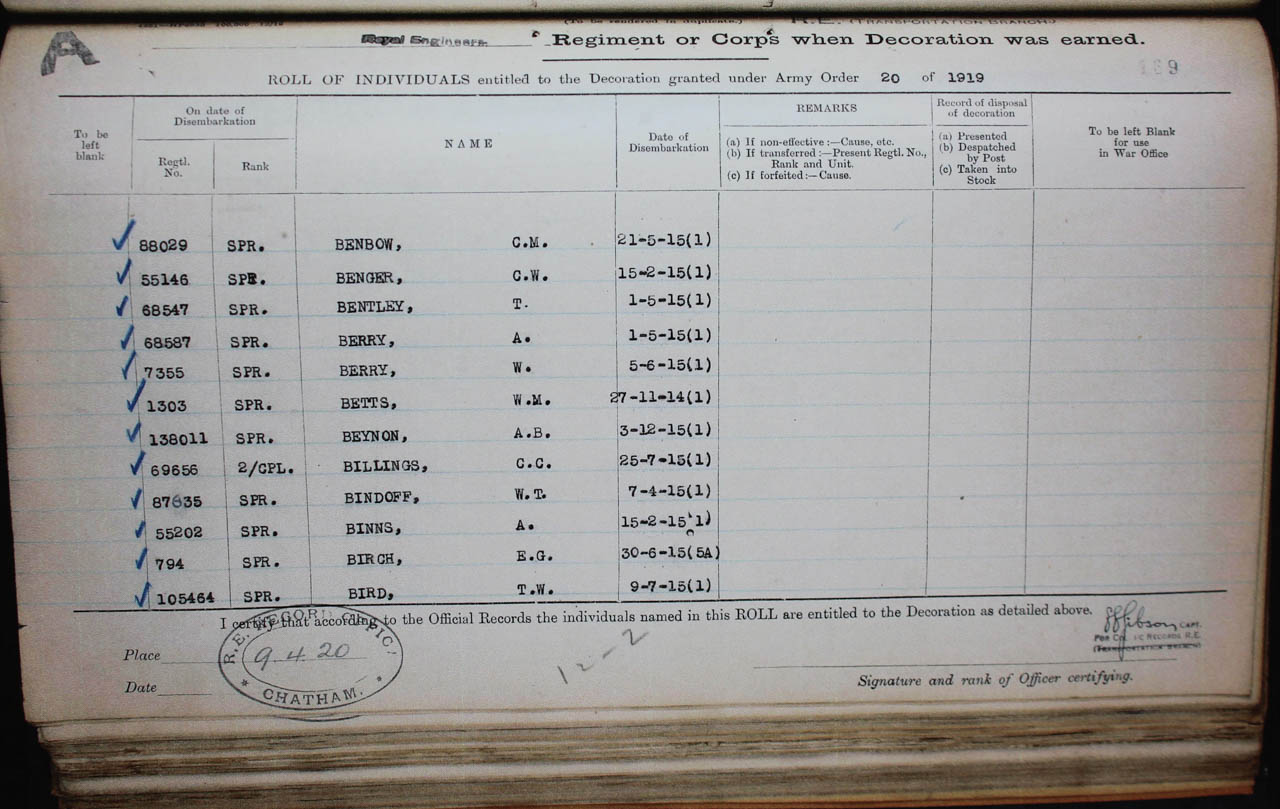 A
R.E. (TRANSPORTATION BRANCH)
Royal Engineers. Regiment or Corps when Decoration was earned.
ROLL OF INDIVIDUALS entitled to the Decoration granted under Army Order 20 of 1919
To be left blank
On date of Disembarkation
Regtl. No.
Rank
NAME
Date of Disembarkation
REMARKS
(a) If non-effective :—Cause, etc.
(b) If transferred :—Present Regtl. No., Rank and Unit.
(c) If forfeited :—Cause.
Record of disposal of decoration
(a) Presented
(b) Despatched by Post
(c) Taken into Stock
To be left Blank for use in War Office
88029 SPR. BENBOW, C.M. 21-5-15(1)
55146 SPR. BENGER, C.W. 15-2-15(1)
68547 SPR. BENTLEY, T. 1-5-15(1)
68587 SPR. BERRY, A. 1-5-15(1)
7355 SPR. BERRY, W. 5-6-15(1)
1303 SPR. BETTS, W.M. 27-11-14(1)
138011 SPR. BEYNON, A.B. 3-12-15(1)
69656 2/CPL. BILLINGS, C.C. 25-7-15(1)
87635 SPR. BINDOFF, W.T. 7-4-15(1)
55202 SPR. BINNS, A. 15-2-15(1)
794 SPR. BIRCH, E.G. 30-6-15(5A)
105464 SPR. BIRD, T.W. 9-7-15(1)
I certify that according to the Official Records the individuals named in this ROLL are entitled to the Decoration as detailed above.
Gibson CAPT.
FOR COL. I/C RECORDS R.E.
(TRANSPORTATION BRANCH)
Place
Date
R.E. RECORD OFFICE
9.4.20
CHATHAM.
12-2
Signature and rank of Officer certifying.